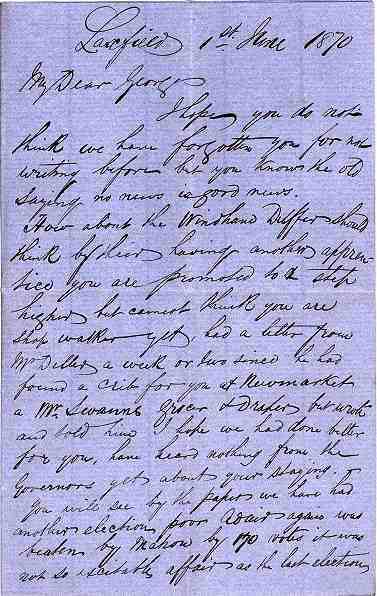 Laxfield 1st June 1870
My Dear George
I hope you do not
think we have forgotten you for not
writing before but you know the old
saying no news is good news.
How about the Drufser should
think by their having another appren-
tice you are promoted to a step
higher but cannot think you are
shop walker yet, had a letter from
Mr a week or two since he had
found a crib for you at Newmarket
a Mr Swanns Grocer & Draper but wrote
and told him I hope we had done better
for you, have heard nothing from the
Governors yet about your staying.
You will see by the papers we have had
another election poor again was
beaten by by 170 votes it was
not so excitable affair as the last election